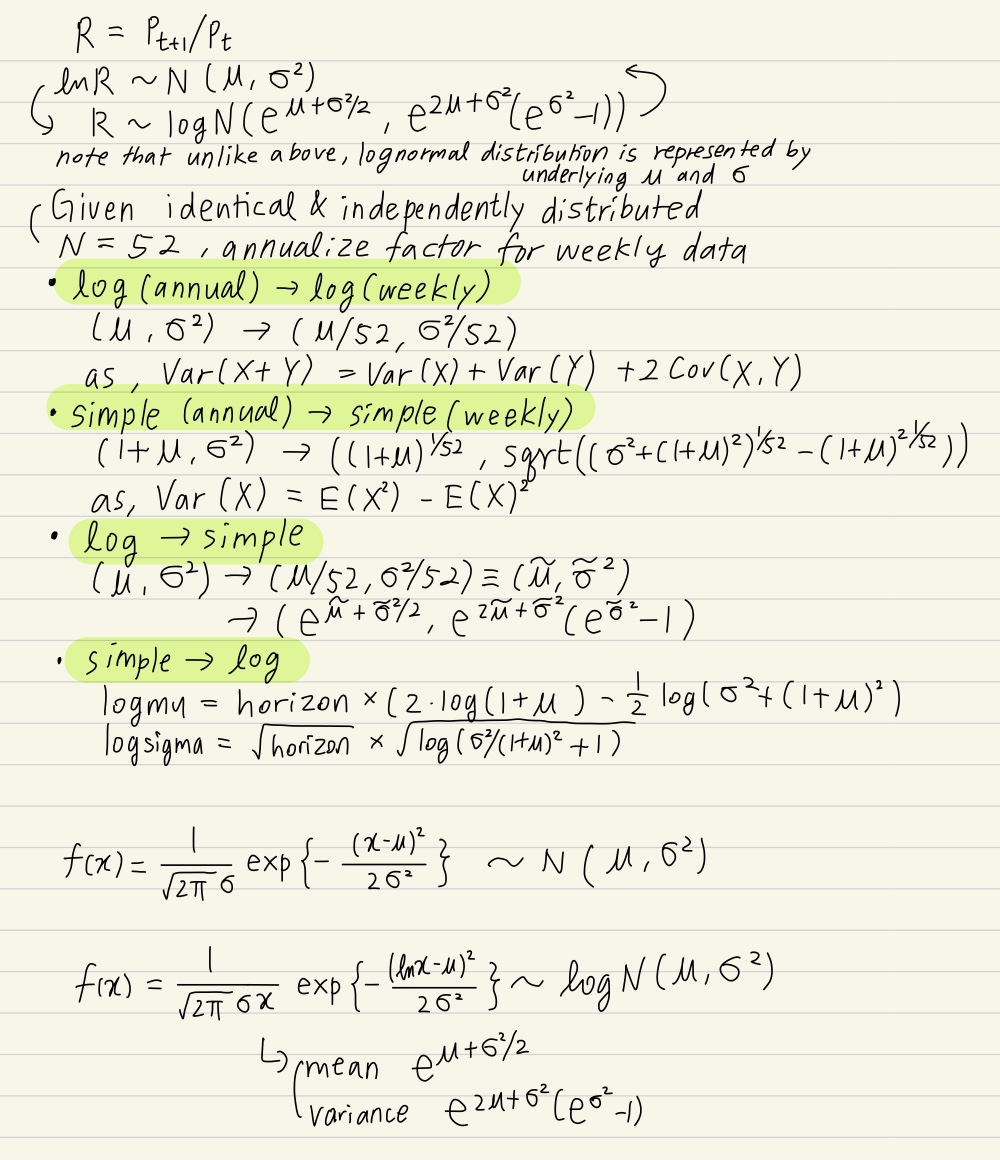 R = P_{t+1}/P_t
lnR ~ N(μ, σ²)
R ~ logN(e^{μ+σ²/2}, e^{2μ+σ²}(e^{σ²}-1))
note that unlike above, lognormal distribution is represented by
underlying μ and σ
Given identical & independently distributed
N = 52, annualize factor for weekly data
• log (annual) → log (weekly)
(μ, σ²) → (μ/52, σ²/52)
as, Var(X+Y) = Var(X) + Var(Y) + 2 Cov(X,Y)
• simple (annual) → simple (weekly)
(1+μ, σ²) → ((1+μ)^{1/52}, sqrt((σ²+(1+μ)²)^{1/52} - (1+μ)^{2·1/52}))
as, Var(X) = E(X²) - E(X)²
• log → simple
(μ, σ²) → (μ/52, σ²/52) ≡ (μ̃, σ̃²)
→ (e^{μ̃+σ̃²/2}, e^{2μ̃+σ̃²}(e^{σ̃²}-1)
• simple → log
logmu = horizon × (2·log(1+μ) - 1/2 log(σ²+(1+μ)²)
logsigma = √horizon × √log(σ²/(1+μ)² + 1)
f(x) = 1/(√2π σ) exp{- (x-μ)²/2σ²} ~ N(μ, σ²)
f(x) = 1/(√2π σx) exp{- (lnx-μ)²/2σ²} ~ logN(μ, σ²)
↳ mean e^{μ+σ²/2}
variance e^{2μ+σ²}(e^{σ²}-1)